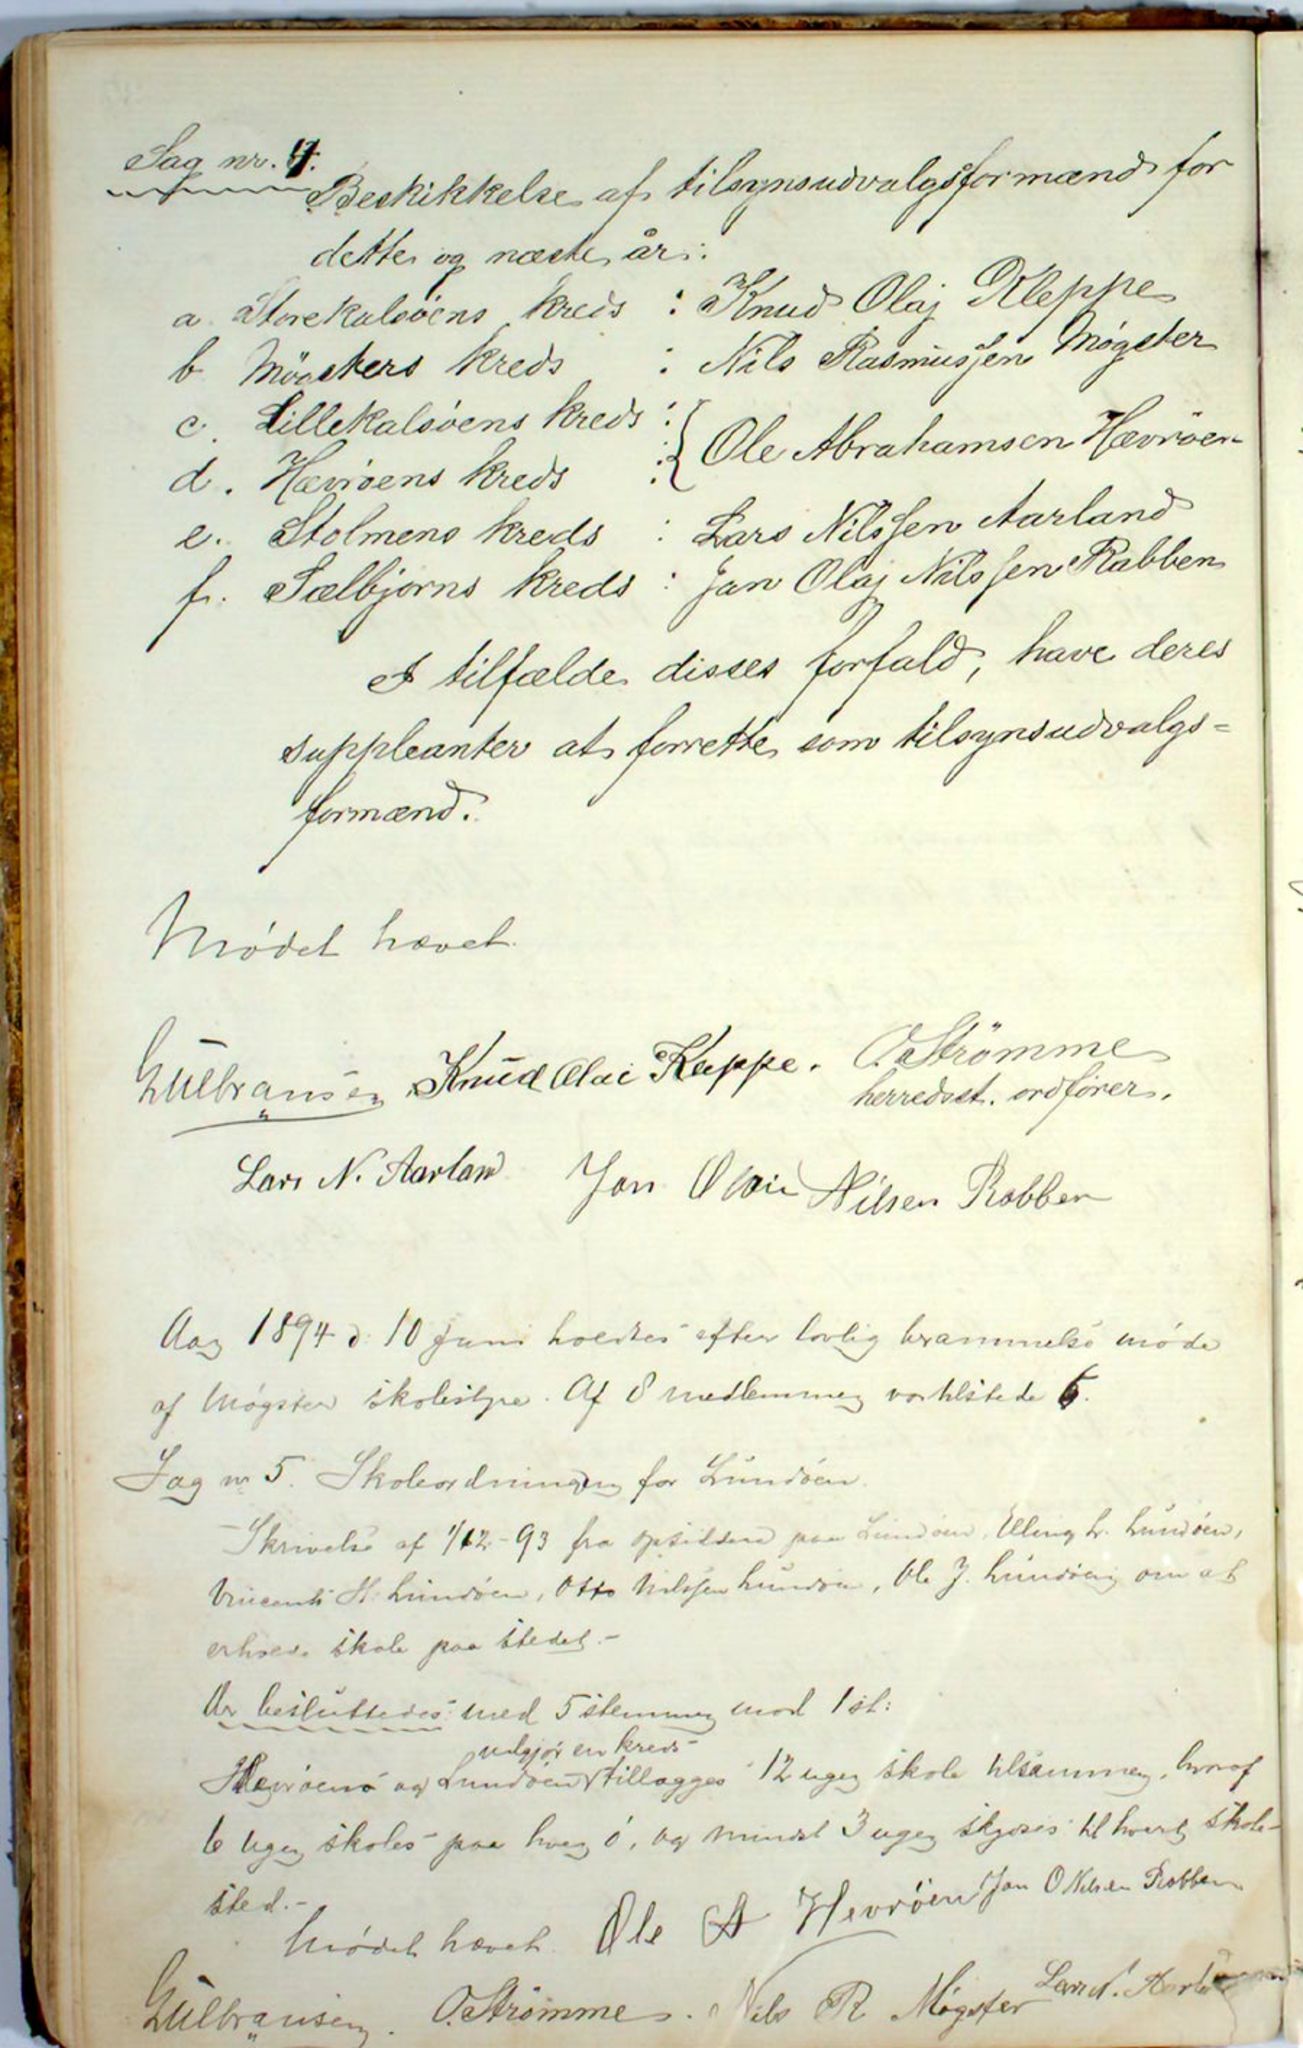 Sag nr. 4.
Beskikkelse af tilsynsudvalgsformænd for
dette og næste år:
a. Storekalsöens kreds : Knud Olaj Kleppe
b Mögsters kreds : Nils Rasmussen Møgster
c. Lillekalsöens kreds :
d. Hævröens kreds : } Ole Abrahamsen Hævröen
e. Stolmens kreds : Lars Nilssen Aarland
f. Sælbjørns kreds : Jan Olaj Nilssen Rabben
I tilfælde disses forfald, have deres
suppleanter at forrette som tilsynsudvalgs-
formænd.
Mødet hævet.
Gulbransen Knud Olai Kleppe. O. Strömme
herredsst. ordfører.
Lars N. Aarland Jan Olai Nilsen Rabben
Aar 1894 d. 10 juni holdtes efter lovlig berammelse møde
af Møgster skolestyre. Af 8 medlemmer var tilstede 6.
Sag nr 5. Skoleordningen for Lundöen.
Skrivelse af 1/12-93 fra opsiddere paa Lundöen, Elling H. Lundöen,
Vincents H. Lundöen, Otto Nilssen Lundöen, Ole J. Lundöen om at
erholde skole paa stedet.-
Der besluttedes med 5 stemmer mod 1 st:
udgjør en kreds
Hævröens og Lundöen tillægges 12 uger skole tilsammen, hvoraf
6 uger skoles paa hver ö, og mindst 3 uger skydses til hvert skole-
sted.-
Mødet hævet. Ole A Hevröen Jan O Nilsen Rabben
Gulbransen. O. Strömme. Nils R Møgster Lars N. Aarland